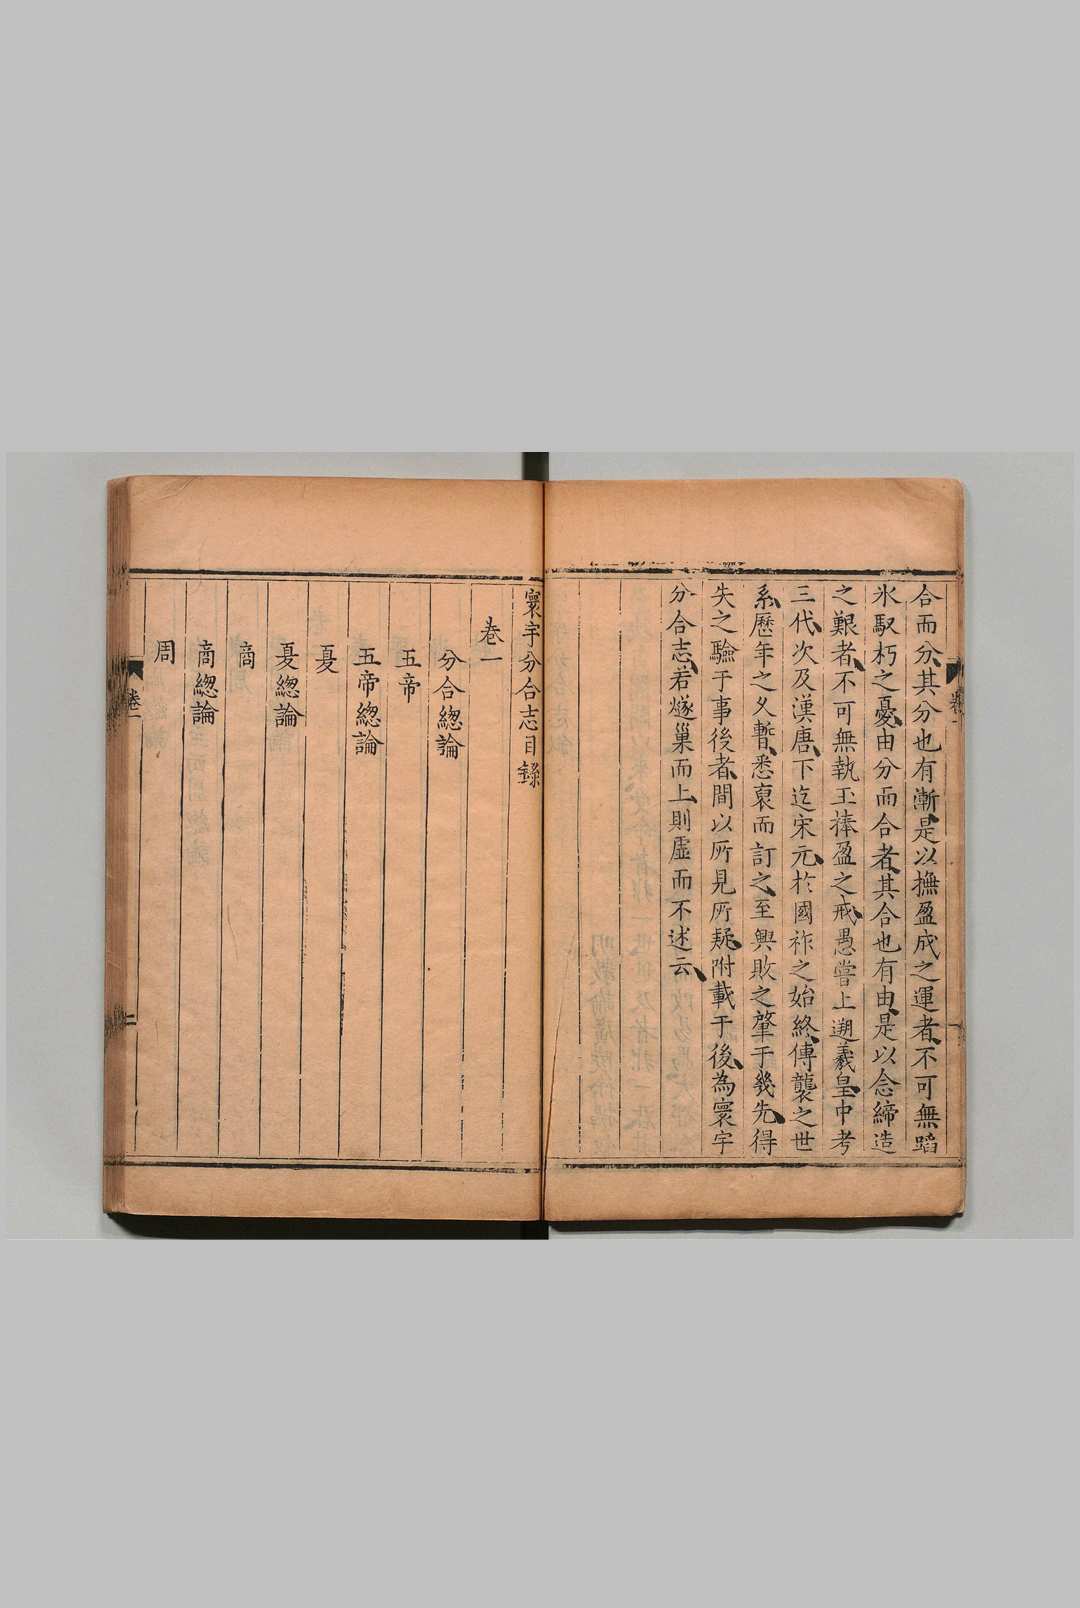 合而分其分也有漸是以撫盈成之運者不可無蹈
氷馭朽之憂由分而合者其合也有由是以念締造
之艱者不可無執玉捧盈之戒愚嘗上遡羲皇中考
三代次及漢唐下迄宋元於國祚之始終傳襲之世
系歷年之久暫悉裒而訂之至興敗之肇于幾先得
失之驗于事後者間以所見所疑附載于後為寰宇
分合志若燧巢而上則虛而不述云
寰宇分合志目錄
卷一
分合總論
五帝
五帝總論
夏
夏總論
商
商總論
周
卷一
二